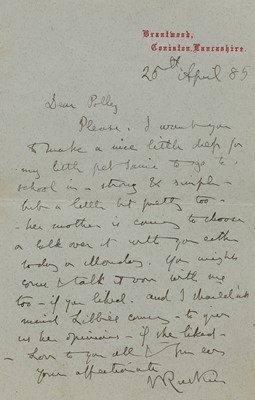 Brantwood,
Coniston, Lancashire.
25th April 85
Dear Polly
Please. I want you
to make a nice little dress for
my little pet Jamie to go to
school in - strong & simple -
but a little bit pretty too -
- her mother is coming to choose
or talk over it with you either
today or Monday. You might
come & talk it over with me
too - if you liked. and I shouldn't
mind Libbie's coming - to give
us her opinions - if she liked -
- Love to you all &
Your affectionate
J Ruskin